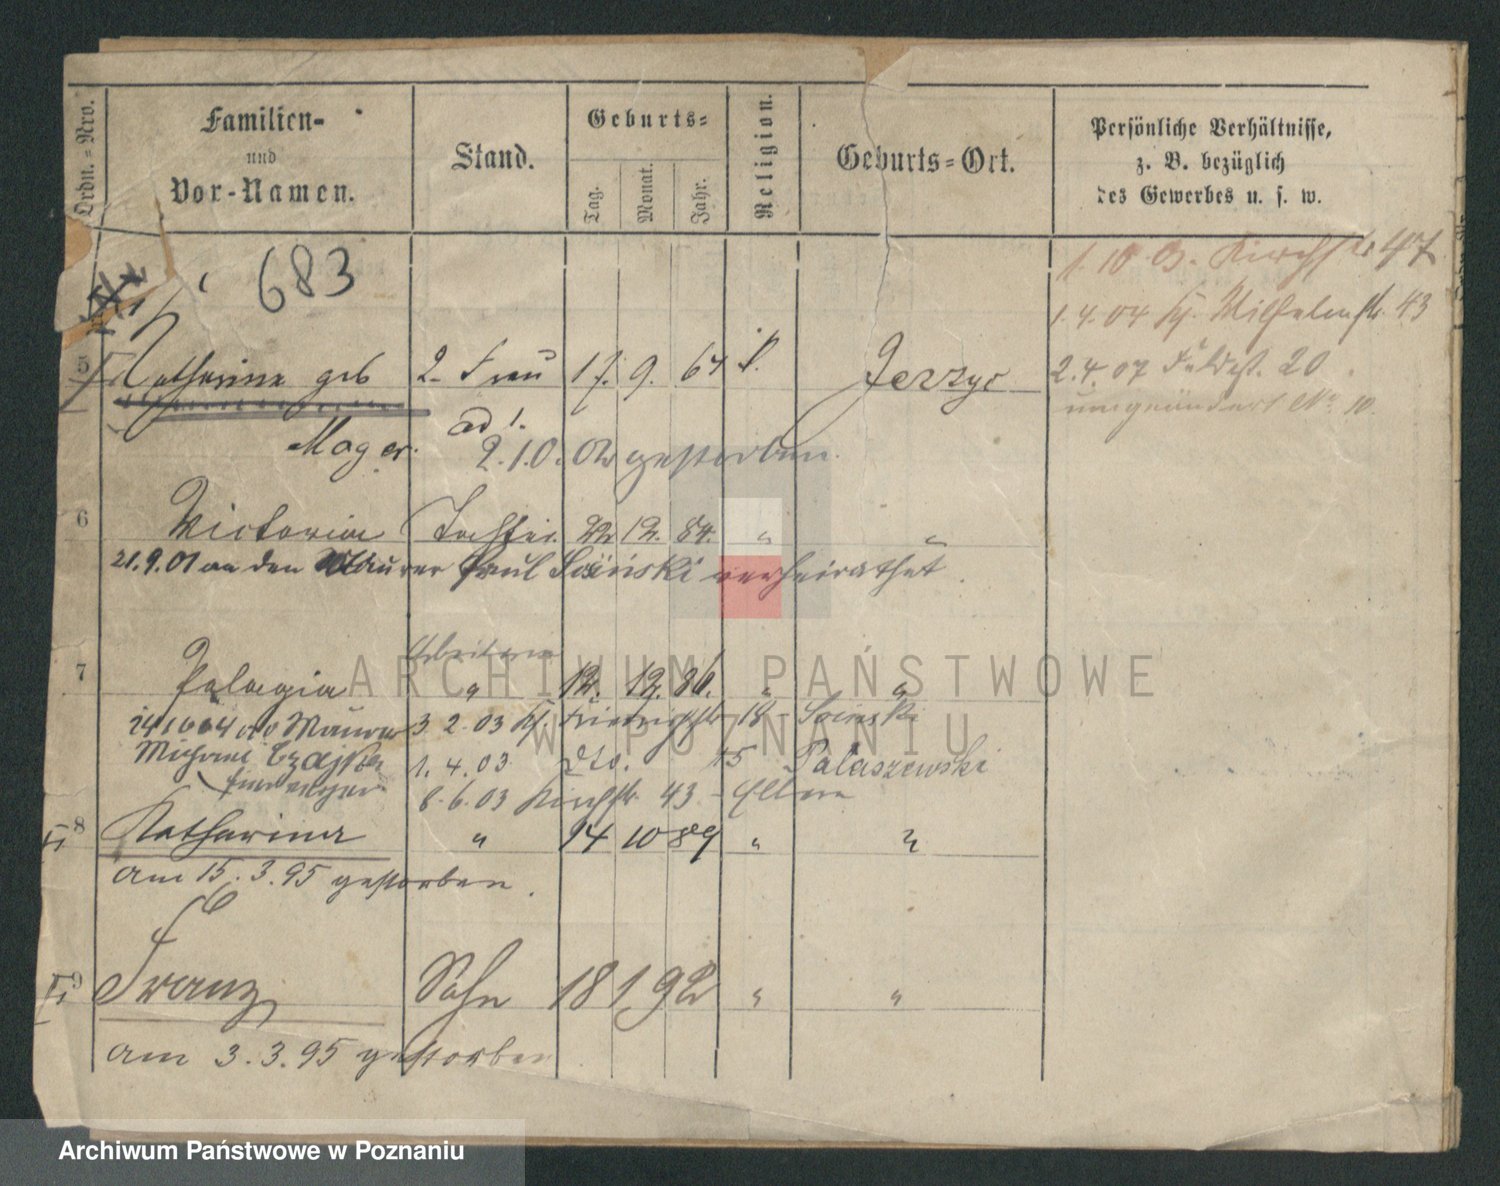 Ordn.=Nro.
Familien-
und
Vor-Namen.
Stand.
Geburts=
Tag.
Monat.
Jahr.
Religion.
Geburts=Ort.
Persönliche Verhältnisse,
z. B. bezüglich
des Gewerbes u. s. w.
683
1.10.03. Kirchstr 47
1.4.04 Wilhelmstr. 43
5 Katharina geb 2. Frau 17. 9. 64 k. Jerzyc
2.4.07 Feldst. 20
umgeändert No 10.
ad 1.
Mager. 2.10.02 gestorben.
6 Victoria Tochter 22 12. 84. " "
21.9.01 an den Maurer Paul Soinski verheirathet.
Arbeiterin
7 Pelagia " 12. 12. 86. " "
Maurer 3.2.03 Friedrichstr 18 Soinski
Michael Czajka 1.4.03 dto. 45 Palaszewski
8.6.03 Kirchstr. 43 - Eltern
8 Katharina " 14 10 89 " "
am 15.3.95 gestorben.
9 Franz Sohn 18 1 92 " "
am 3.3.95 gestorben
ARCHIWUM PAŃSTWOWE
W POZNANIU
Archiwum Państwowe w Poznaniu